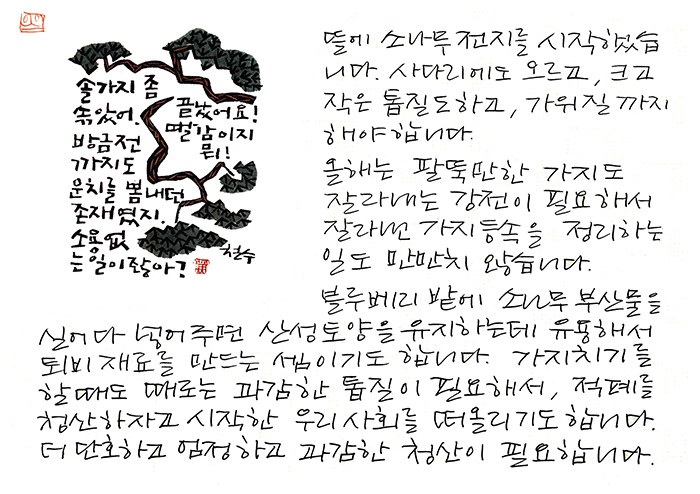 솔가지 좀
솎았어.
방금전
까지도
운치를 뽐내던
존재였지.
소용없
는일이잖아?
끝났어요!
땔감이지
뭐!
철수
뜰에 소나무 전지를 시작했습
니다. 사다리에도 오르고, 크고
작은 톱질도하고, 가위질까지
해야 합니다.
올해는 팔뚝만한 가지도
잘라내는 강전이 필요해서
잘라낸 가지등속을 정리하는
일도 만만치 않습니다.
블루베리 밭에 소나무 부산물을
실어다 넣어주면 산성토양을 유지하는데 유용해서
퇴비 재료를 만드는 셈이기도 합니다. 가지치기를
할때도 때로는 과감한 톱질이 필요해서, 적폐를
청산하자고 시작한 우리사회를 떠올리기도 합니다.
더 단호하고 엄정하고 과감한 청산이 필요합니다.